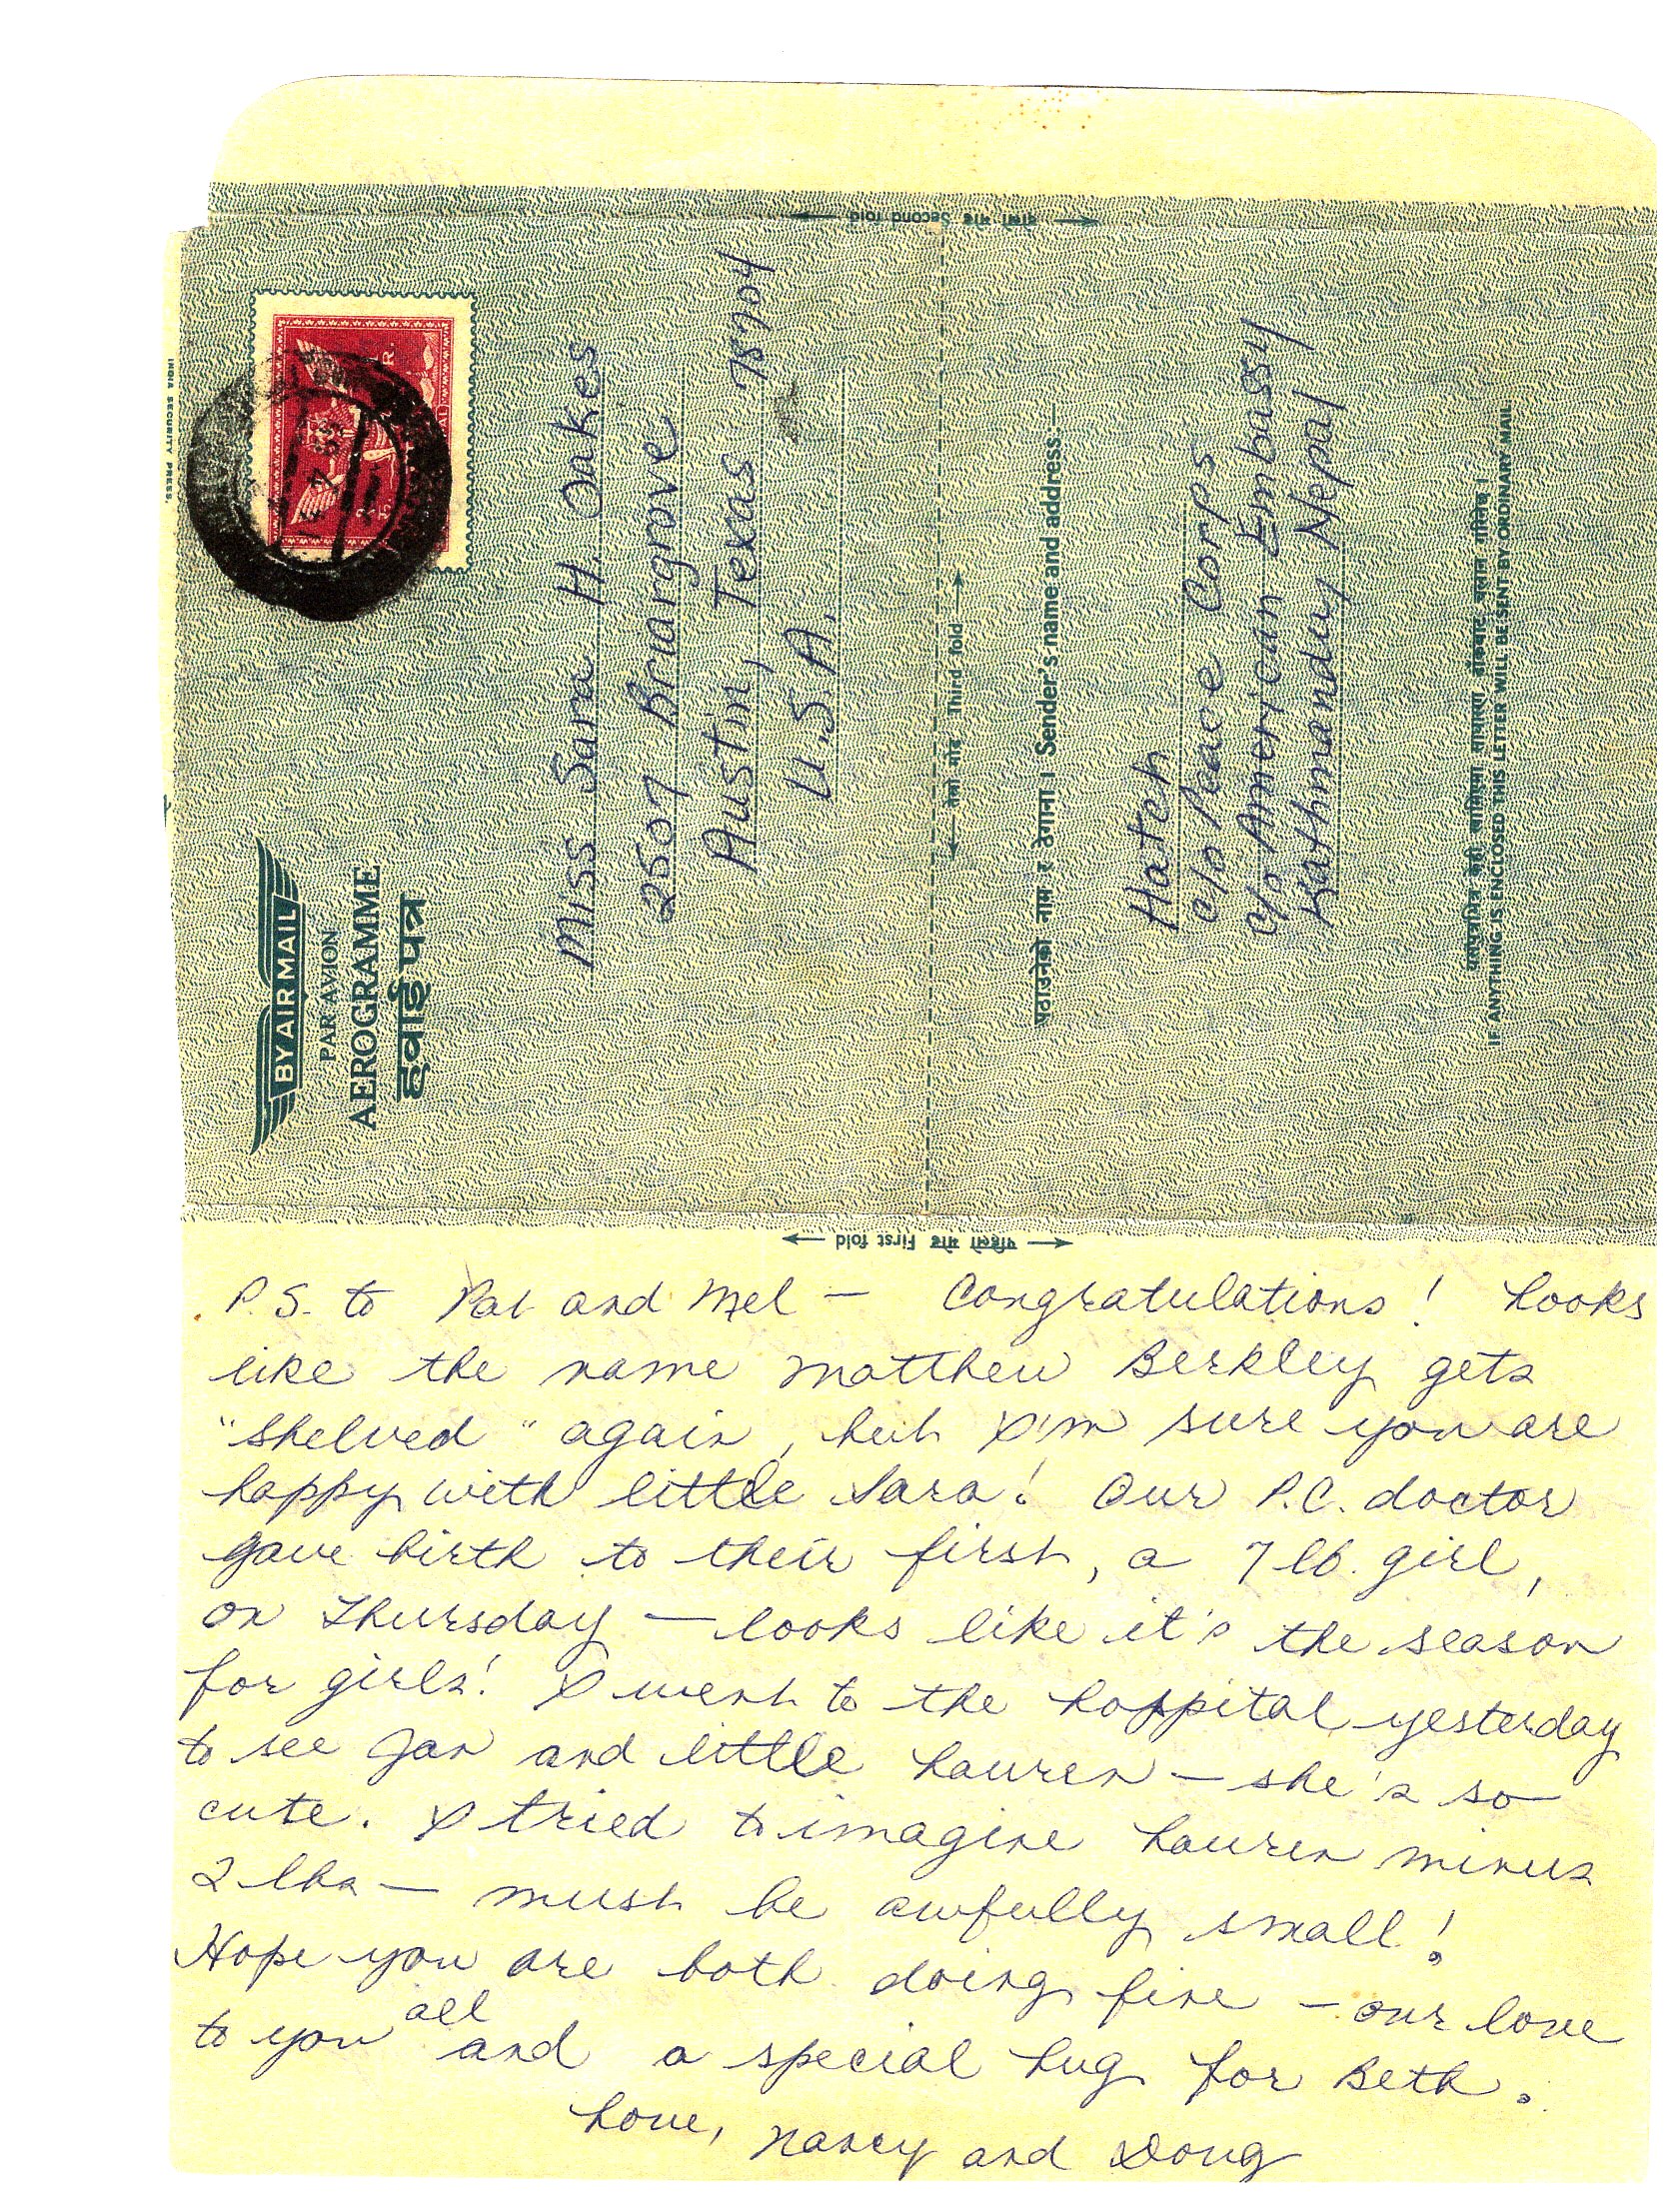 दोस्रो मोड Second fold
INDIA SECURITY PRESS.
BY AIR MAIL
PAR AVION
AEROGRAMME
हवाई पत्र
Miss Sara H. Oakes
2507 Briargrove
Austin, Texas 78704
U.S.A.
तेस्रो मोड Third fold
पठाउनेको नाम र ठेगाना । Sender's name and address:—
Hatch
c/o Peace Corps
c/o American Embassy
Kathmandu, Nepal
IF ANYTHING IS ENCLOSED THIS LETTER WILL BE SENT BY ORDINARY MAIL.
पहिलो मोड First fold
P.S. to Pat and Mel — Congratulations! Looks
like the name Matthew Berkley gets
"shelved" again, but I'm sure you are
happy with little Sara! Our P.C. doctor
gave birth to their first, a 7 lb. girl,
on Thursday — looks like it's the season
for girls! I went to the hospital yesterday
to see Jan and little Lauren — she's so
cute. I tried to imagine Lauren minus
2 lbs — must be awfully small!
Hope you are both doing fine — our love
to you all and a special hug for Beth.
Love, Nancy and Doug